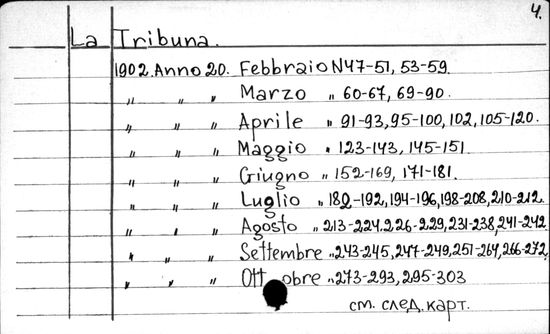 4.
La Tribuna.
1902. Anno 20. Febbraio N47-51, 53-59.
" " " Marzo " 60-67, 69-90.
" " " Aprile " 91-93, 95-100, 102, 105-120.
" " " Maggio " 123-143, 145-151
" " " Giugno " 152-169, 171-181.
" " " Luglio " 182-192, 194-196, 198-208, 210-212.
" " " Agosto " 213-224. 226-229, 231-238, 241-242
" " " Settembre " 243-245, 247-249, 251-264, 266-272,
" " " Ottobre " 273-293, 295-303
см. след. карт.